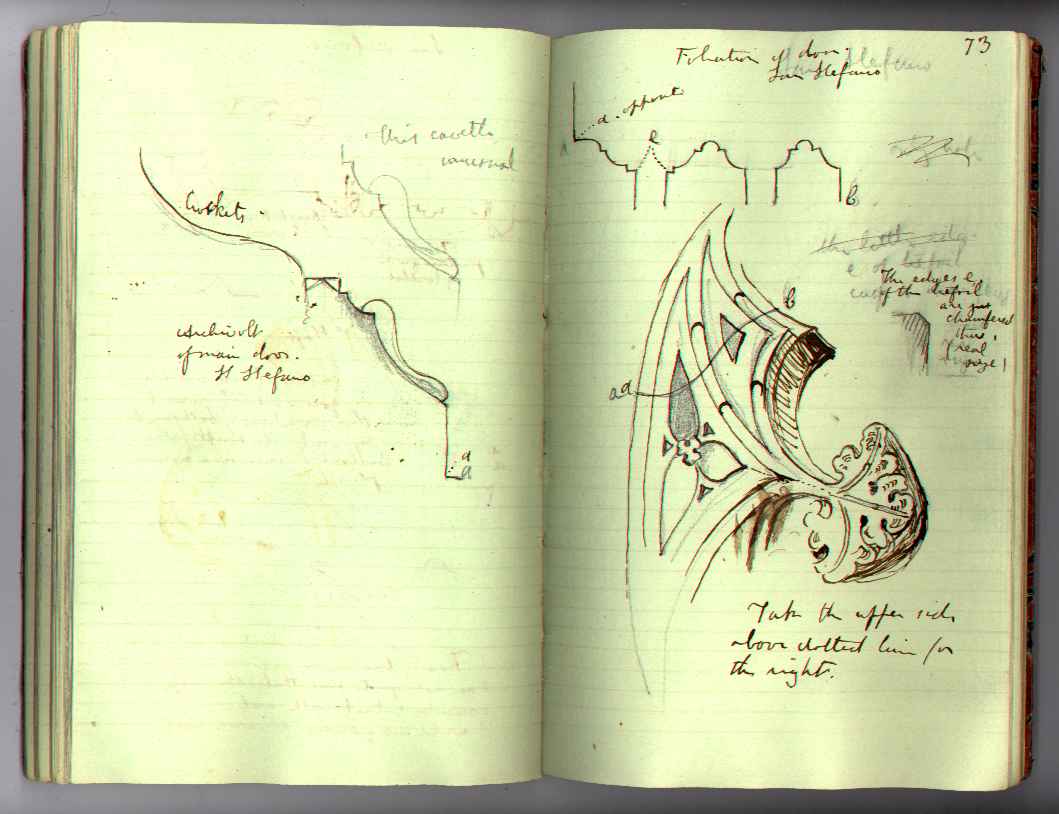 this cavetto
universal
Crockets.
Archivolt
of main door.
St Stefano
a
73
Foliation of door.
San Stefano
a. opposite
e
b
b
a d
The edges e,
of the trefoil
are just
chamfered
thus,
(real
size)
Take the upper side
above dotted line for
the right.